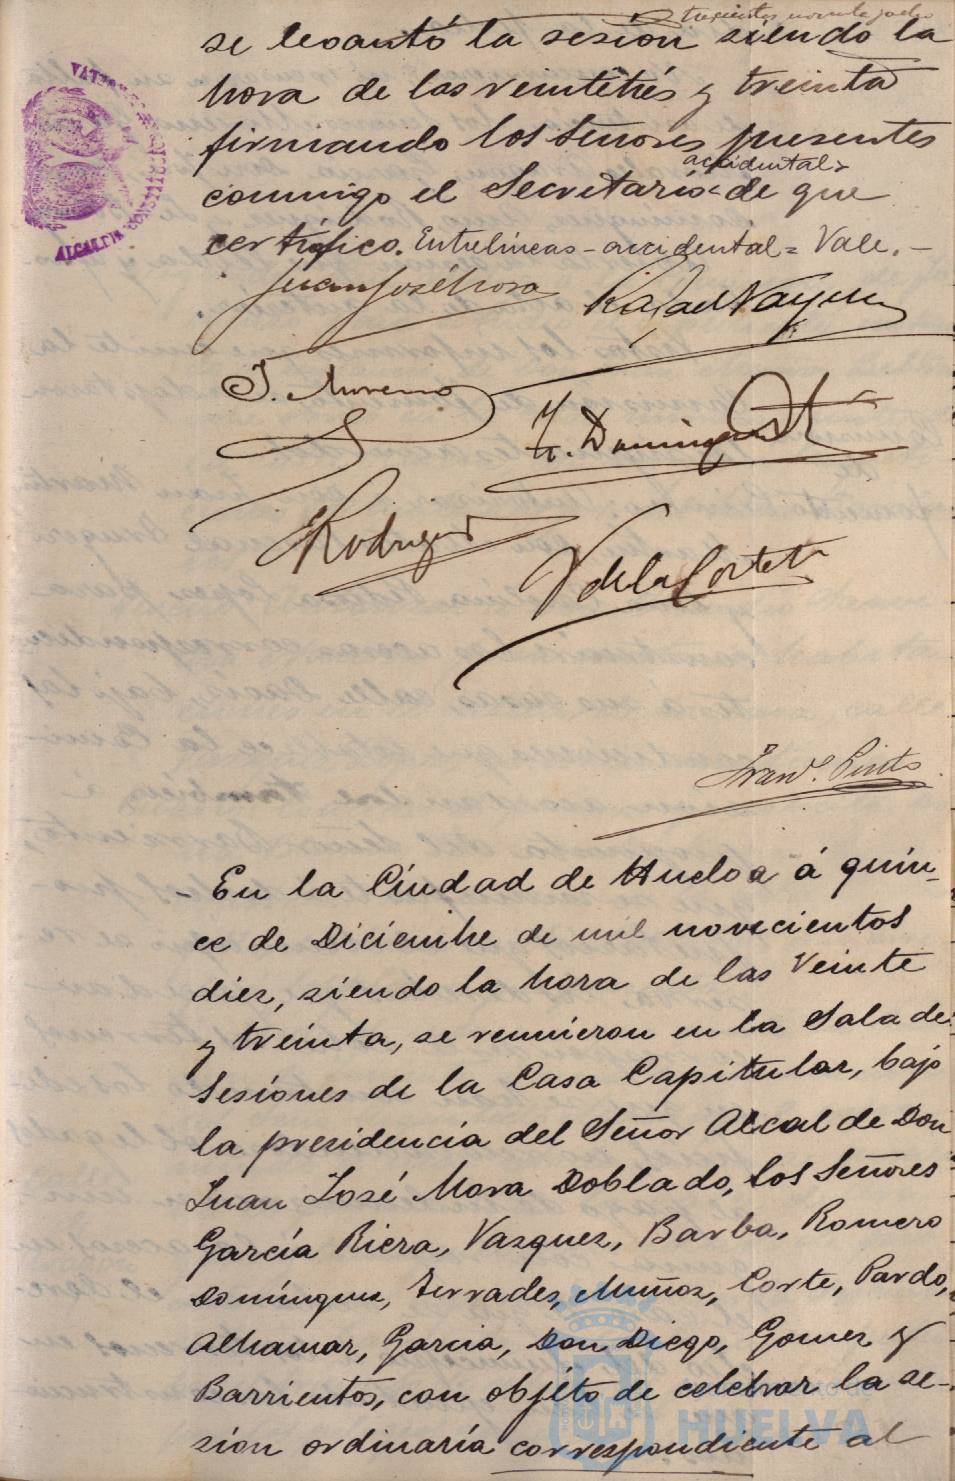 trescientos noventa y ocho
se levantó la sesion siendo la
hora de las veintitrés y treinta
firmando los Señores presentes
accidental
conmigo el Secretario de que
certífico. Entrelíneas - accidental = Vale. -
Juan José Mora
Rafael Vazquez
J. Moreno
F. Dominguez
Rodriguez
V de la Corte
Franco. Pinto
- En la Ciudad de Huelva á quin-
ce de Diciembre de mil novecientos
diez, siendo la hora de las Veinte
y treinta, se reunieron en la Sala de
Sesiones de la Casa Capitular, bajo
la presidencia del Señor Alcalde Don
Juan José Mora Doblado, los Señores
García Riera, Vazquez, Barba, Romero
Domínguez, Terrades, Muñoz, Corte, Pardo,
Alhamar, Garcia, Don Diego, Gomez y
Barrientos, con objéto de celebrar la se-
sion ordinaria correspondiente al
HUELVA
ALCALDIA CONSTITUCIONAL